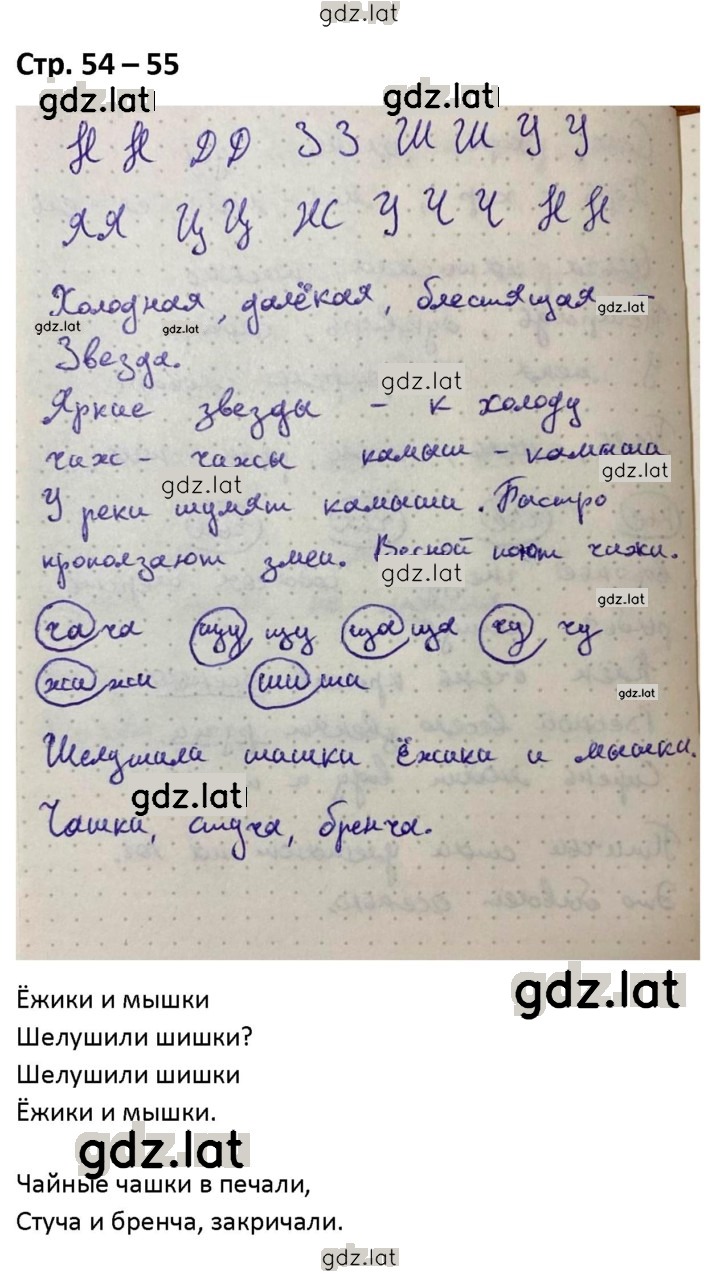 gdz.lat
Стр. 54 – 55
gdz.lat gdz.lat
Н Н Д Д З З Ш Ш У У
Я Я Ц Ц Ж У Ч Ч Н Н
Холодная, далёкая, блестящая –
gdz.lat gdz.lat gdz.lat
Звезда.
gdz.lat
Яркие звезды – к холоду
чиж – чижы камыш – камыши
gdz.lat gdz.lat
У реки шумят камыши. Быстро
проползают змеи. Весной поют чижи.
gdz.lat
gdz.lat
ча ча щу щу ща ща чу чу
жи жи ши ши
gdz.lat
Шелушили шишки Ёжики и мышки.
gdz.lat
Чашки, стуча, бренча.
gdz.lat
Ёжики и мышки
Шелушили шишки?
Шелушили шишки
Ёжики и мышки.
gdz.lat
Чайные чашки в печали,
Стуча и бренча, закричали.
gdz.lat